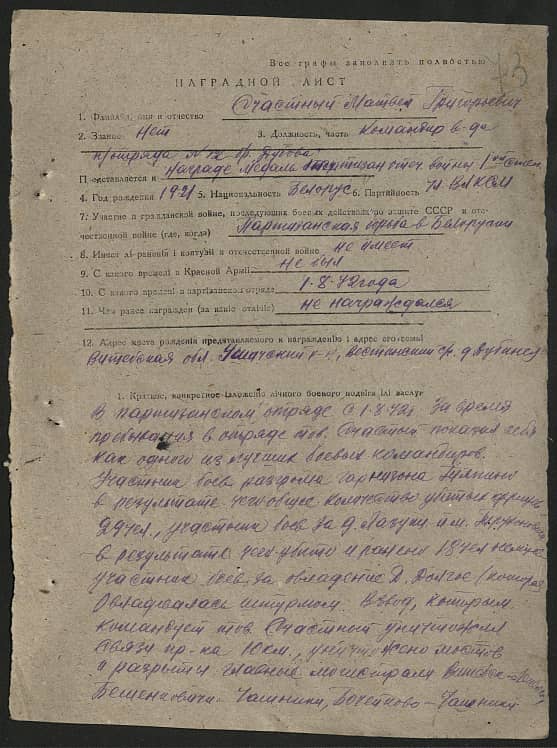 73
Все графы заполнять полностью
НАГРАДНОЙ ЛИСТ
1. Фамилия, имя и отчество Счастный Матвей Григорьевич
2. Звание Нет 3. Должность, часть командир в-да
п/отряда № 12 бр. Дубова
Представляется к награде Медаль партизан отеч. войны 1 степ.
4. Год рождения 1921 5. Национальность Белорус 6. Партийность чл. ВЛКСМ
7. Участие в гражданской войне, последующих боевых действиях по защите СССР и оте-
чественной войне (где, когда) Партизанская борьба в Белорусии
8. Имеет ли ранения и контузии в отечественной войне не имеет
9. С какого времени в Красной Армии Не был
10. С какого времени в партизанском отряде 1-8-42 года
11. Чем ранее награжден (за какие отличия) не награждался
12. Адрес места рождения представляемого к награждению и адрес его семьи
Витебская обл. Ушачский р-н, д.
1. Краткое, конкретное изложение личного боевого подвига или заслуг
В партизанском отряде с 1.8.42г. За время
пребывания в отряде тов. Счастный показал себя
как один из лучших боевых командиров.
Участник боев разгрома гарнизона
в результате чего общее количество убитых фрицев
29 чел., участник боев за д. Лазуки и м.
в результате чего убито и ранено 18 чел.
участник боев за овладение Д. Долгое (которая
овладевалась штурмом. Взвод, которым
командует тов. Счастный уничтожил
связи пр-ка 10 км., уничтожено мостов
и разрыты главные магистрали Витебск –
Бешенковичи – Чашники, Бочейково – Чашники